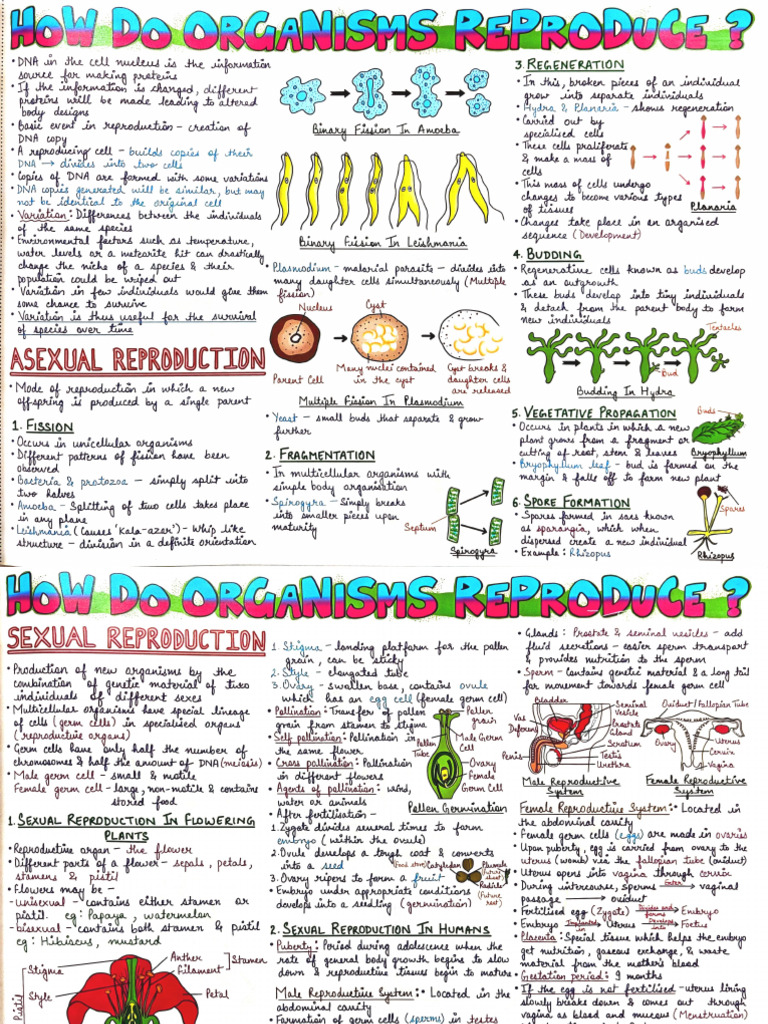 HOW DO ORGANISMS REPRODUCE ?
• DNA in the cell nucleus is the information
source for making proteins
• If the information is changed, different
proteins will be made leading to altered
body designs
• Basic event in reproduction - creation of
DNA copy
• A reproducing cell - builds copies of their
DNA → divides into two cells
• Copies of DNA are formed with some variations
• DNA copies generated will be similar, but may
not be identical to the original cell
• Variation: Differences between the individuals
of the same species
• Environmental factors such as temperature,
water levels or a meteorite hit can drastically
change the niche of a species & their
population could be wiped out
• Variation in few individuals would give them
some chance to survive
• Variation is thus useful for the survival
of species over time
ASEXUAL REPRODUCTION
• Mode of reproduction in which a new
offspring is produced by a single parent
1. FISSION
• Occurs in unicellular organisms
• Different patterns of fission have been
observed
• Bacteria & protozoa - simply split into
two halves
• Amoeba - Splitting of two cells takes place
in any plane
• Leishmania (causes 'Kala-azar') - Whip like
structure - division in a definite orientation
Binary Fission In Amoeba
Binary Fission In Leishmania
• Plasmodium - malarial parasite - divides into
many daughter cells simultaneously (Multiple
fission)
Nucleus
Cyst
Parent Cell
Many nuclei contained
in the cyst
Cyst breaks &
daughter cells
are released
Multiple Fission In Plasmodium
• Yeast - small buds that separate & grow
further
2. FRAGMENTATION
• In multicellular organisms with
simple body organisation
• Spirogyra - Simply breaks
into smaller pieces upon
maturity
Septum
Spirogyra
3. REGENERATION
• In this, broken pieces of an individual
grow into separate individuals
• Hydra & Planaria - shows regeneration
• Carried out by
specialised cells
• These cells proliferate
& make a mass of
cells
• This mass of cells undergo
changes to become various types
of tissues
Planaria
• Changes take place in an organised
sequence (Development)
4. BUDDING
• Regenerative cells known as buds develop
as an outgrowth
• These buds develop into tiny individuals
& detach from the parent body to form
new individuals
Tentacles
Bud
Budding In Hydra
5. VEGETATIVE PROPAGATION
• Occurs in plants in which a new
plant grows from a fragment or
cutting of root, stem & leaves
Buds
Bryophyllum
• Bryophyllum leaf - bud is formed on the
margin & falls off to form new plant
6. SPORE FORMATION
• Spores formed in sacs known
as sporangia, which when
dispersed create a new individual
• Example: Rhizopus
Spores
Rhizopus
HOW DO ORGANISMS REPRODUCE ?
SEXUAL REPRODUCTION
• Production of new organisms by the
combination of genetic material of two
individuals of different sexes
• Multicellular organisms have special lineage
of cells (germ cells) in specialised organs
(reproductive organs)
• Germ cells have only half the number of
chromosomes & half the amount of DNA (meiosis)
• Male germ cell - small & motile
Female germ cell - large, non-motile & contains
stored food
1. SEXUAL REPRODUCTION IN FLOWERING
PLANTS
• Reproductive organ - the flower
• Different parts of a flower - sepals, petals,
stamens & pistil
• Flowers may be -
- unisexual - contains either stamen or
pistil. eg: Papaya, watermelon
- bisexual - contains both stamen & pistil
eg: Hibiscus, mustard
Anther
Filament
Stamen
Stigma
Style
Petal
Pistil
1. Stigma - landing platform for the pollen
grain, can be sticky
2. Style - elongated tube
3. Ovary - swollen base, contains ovule
which has an egg cell (female germ cell)
• Pollination: Transfer of pollen
grain from stamen to stigma
• Self pollination: Pollination in
the same flower
• Cross pollination: Pollination
in different flowers
• Agents of pollination: wind,
water or animals
Pollen
grain
Pollen
Tube
Male Germ
Cell
Ovary
Female
Germ Cell
Pollen Germination
• After fertilisation -
1. Zygote divides several times to form
embryo (within the ovule)
2. Ovule develops a tough coat & converts
into a seed
3. Ovary ripens to form a fruit
• Embryo under appropriate conditions
develops into a seedling (germination)
(Food store) Cotyledon
Plumule
(Future
shoot)
Radicle
(Future
root)
2. SEXUAL REPRODUCTION IN HUMANS
• Puberty: Period during adolescence when the
rate of general body growth begins to slow
down & reproductive tissues begin to mature
Male Reproductive System: • Located in the
abdominal cavity
• Formation of germ cells (sperms) in testes
• Glands: Prostate & seminal vesicles - add
fluid secretions - easier sperm transport
& provides nutrition to the sperm
• Sperm - Contains genetic material & a long tail
for movement towards female germ cell
Bladder
Seminal
Vesicle
Vas
Deferens
Prostate
Gland
Scrotum
Testis
Urethra
Penis
Male Reproductive
System
Oviduct/Fallopian Tube
Ovary
Uterus
Cervix
Vagina
Female Reproductive
System
Female Reproductive System: • Located in
the abdominal cavity
• Female germ cells (eggs) are made in ovaries
• Upon puberty, egg is carried from ovary to the
uterus (womb) via the fallopian tube (oviduct)
• Uterus opens into vagina through cervix
• During intercourse, sperms Enter→ vaginal
passage → oviduct
• Fertilised egg (Zygote) Divides and forms→ Embryo
• Embryo Implanted in→ Uterus Develops into→ Foetus
• Placenta: Special tissue which helps the embryo
get nutrition, gaseous exchange, & waste
material from the mother's blood
• Gestation period: 9 months
• If the egg is not fertilised - uterus lining
slowly breaks down & comes out through
vagina as blood and mucous (Menstruation)